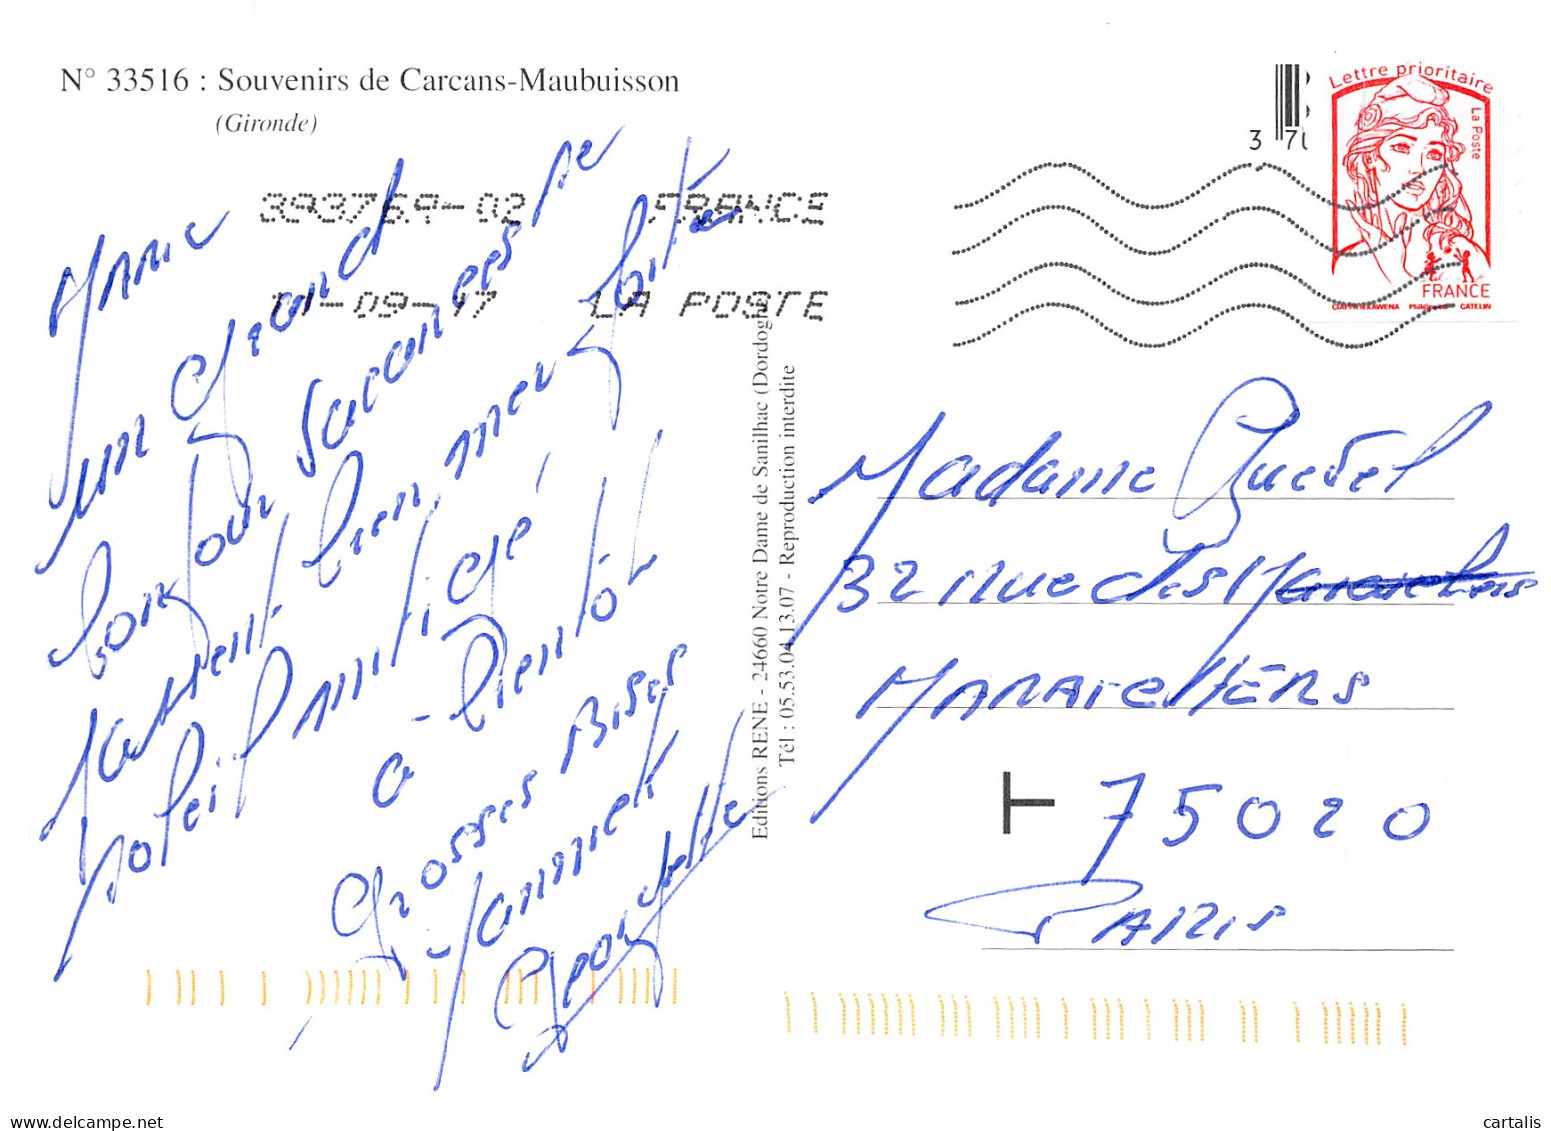 N° 33516 : Souvenirs de Carcans-Maubuisson
(Gironde)
39376A-02 FRANCE
11-09-17 LA POSTE
Lettre prioritaire
La Poste
FRANCE
CIAPPA & KAWENA CATELIN
3 70
Annie
un Grand
bonjour
Vacances se
passent bien
soleil mitigé
à bientôt
Grosses Bises
Yannick
Georgette
Editions RENE - 24660 Notre Dame de Sanilhac (Dordogne
Tél : 05.53.04.13.07 - Reproduction interdite
Madame Quevel
32 Rue des
MARAICHERS
T 75020
PARIS
www.delcampe.net
cartalis